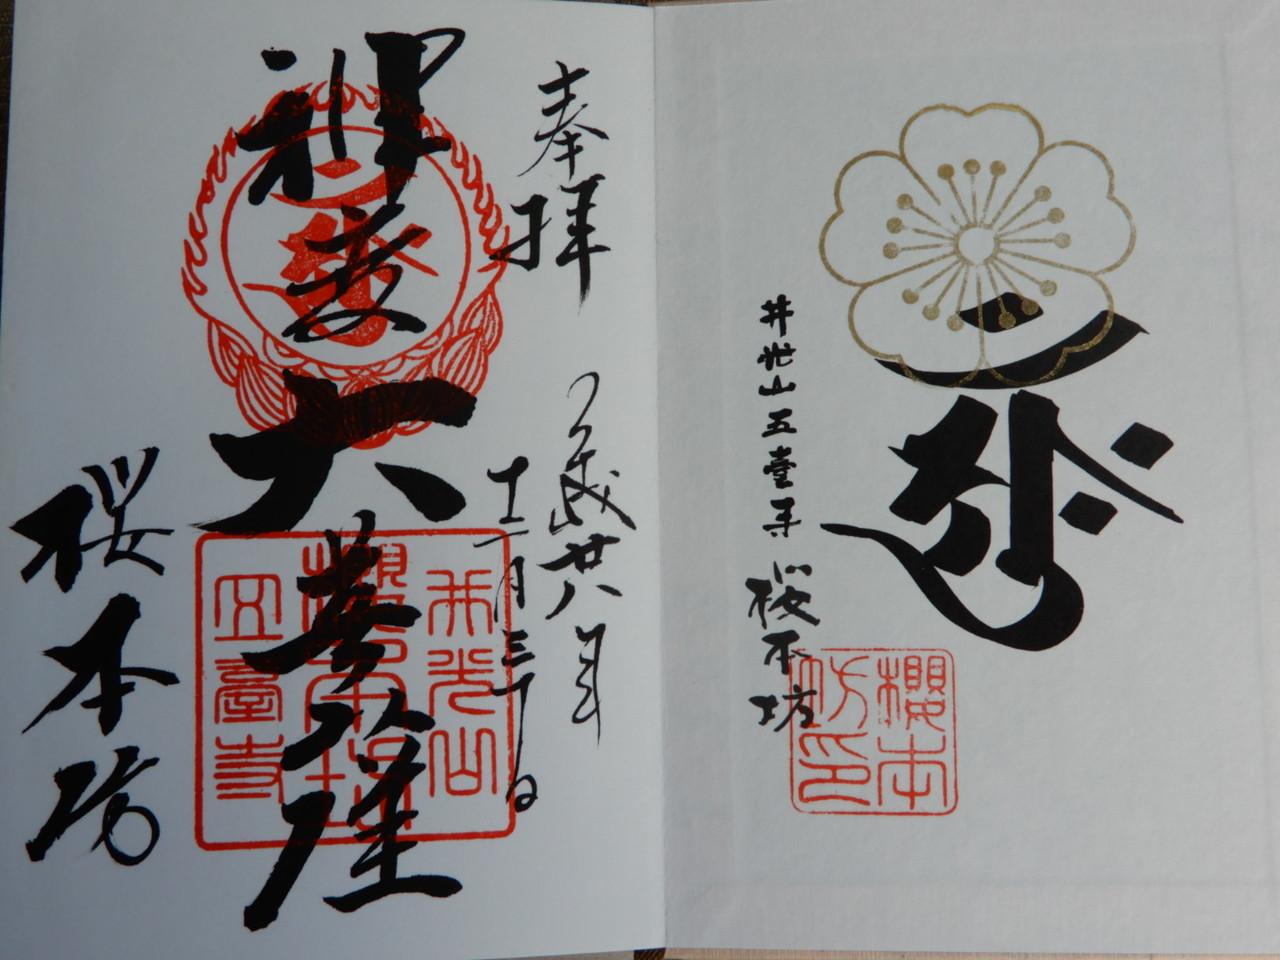 井光山五臺寺
桜本坊
櫻本坊印
奉拝
平成廿八年
十二月三十日
神変大菩薩
井光山
櫻本坊
五臺寺
桜本坊